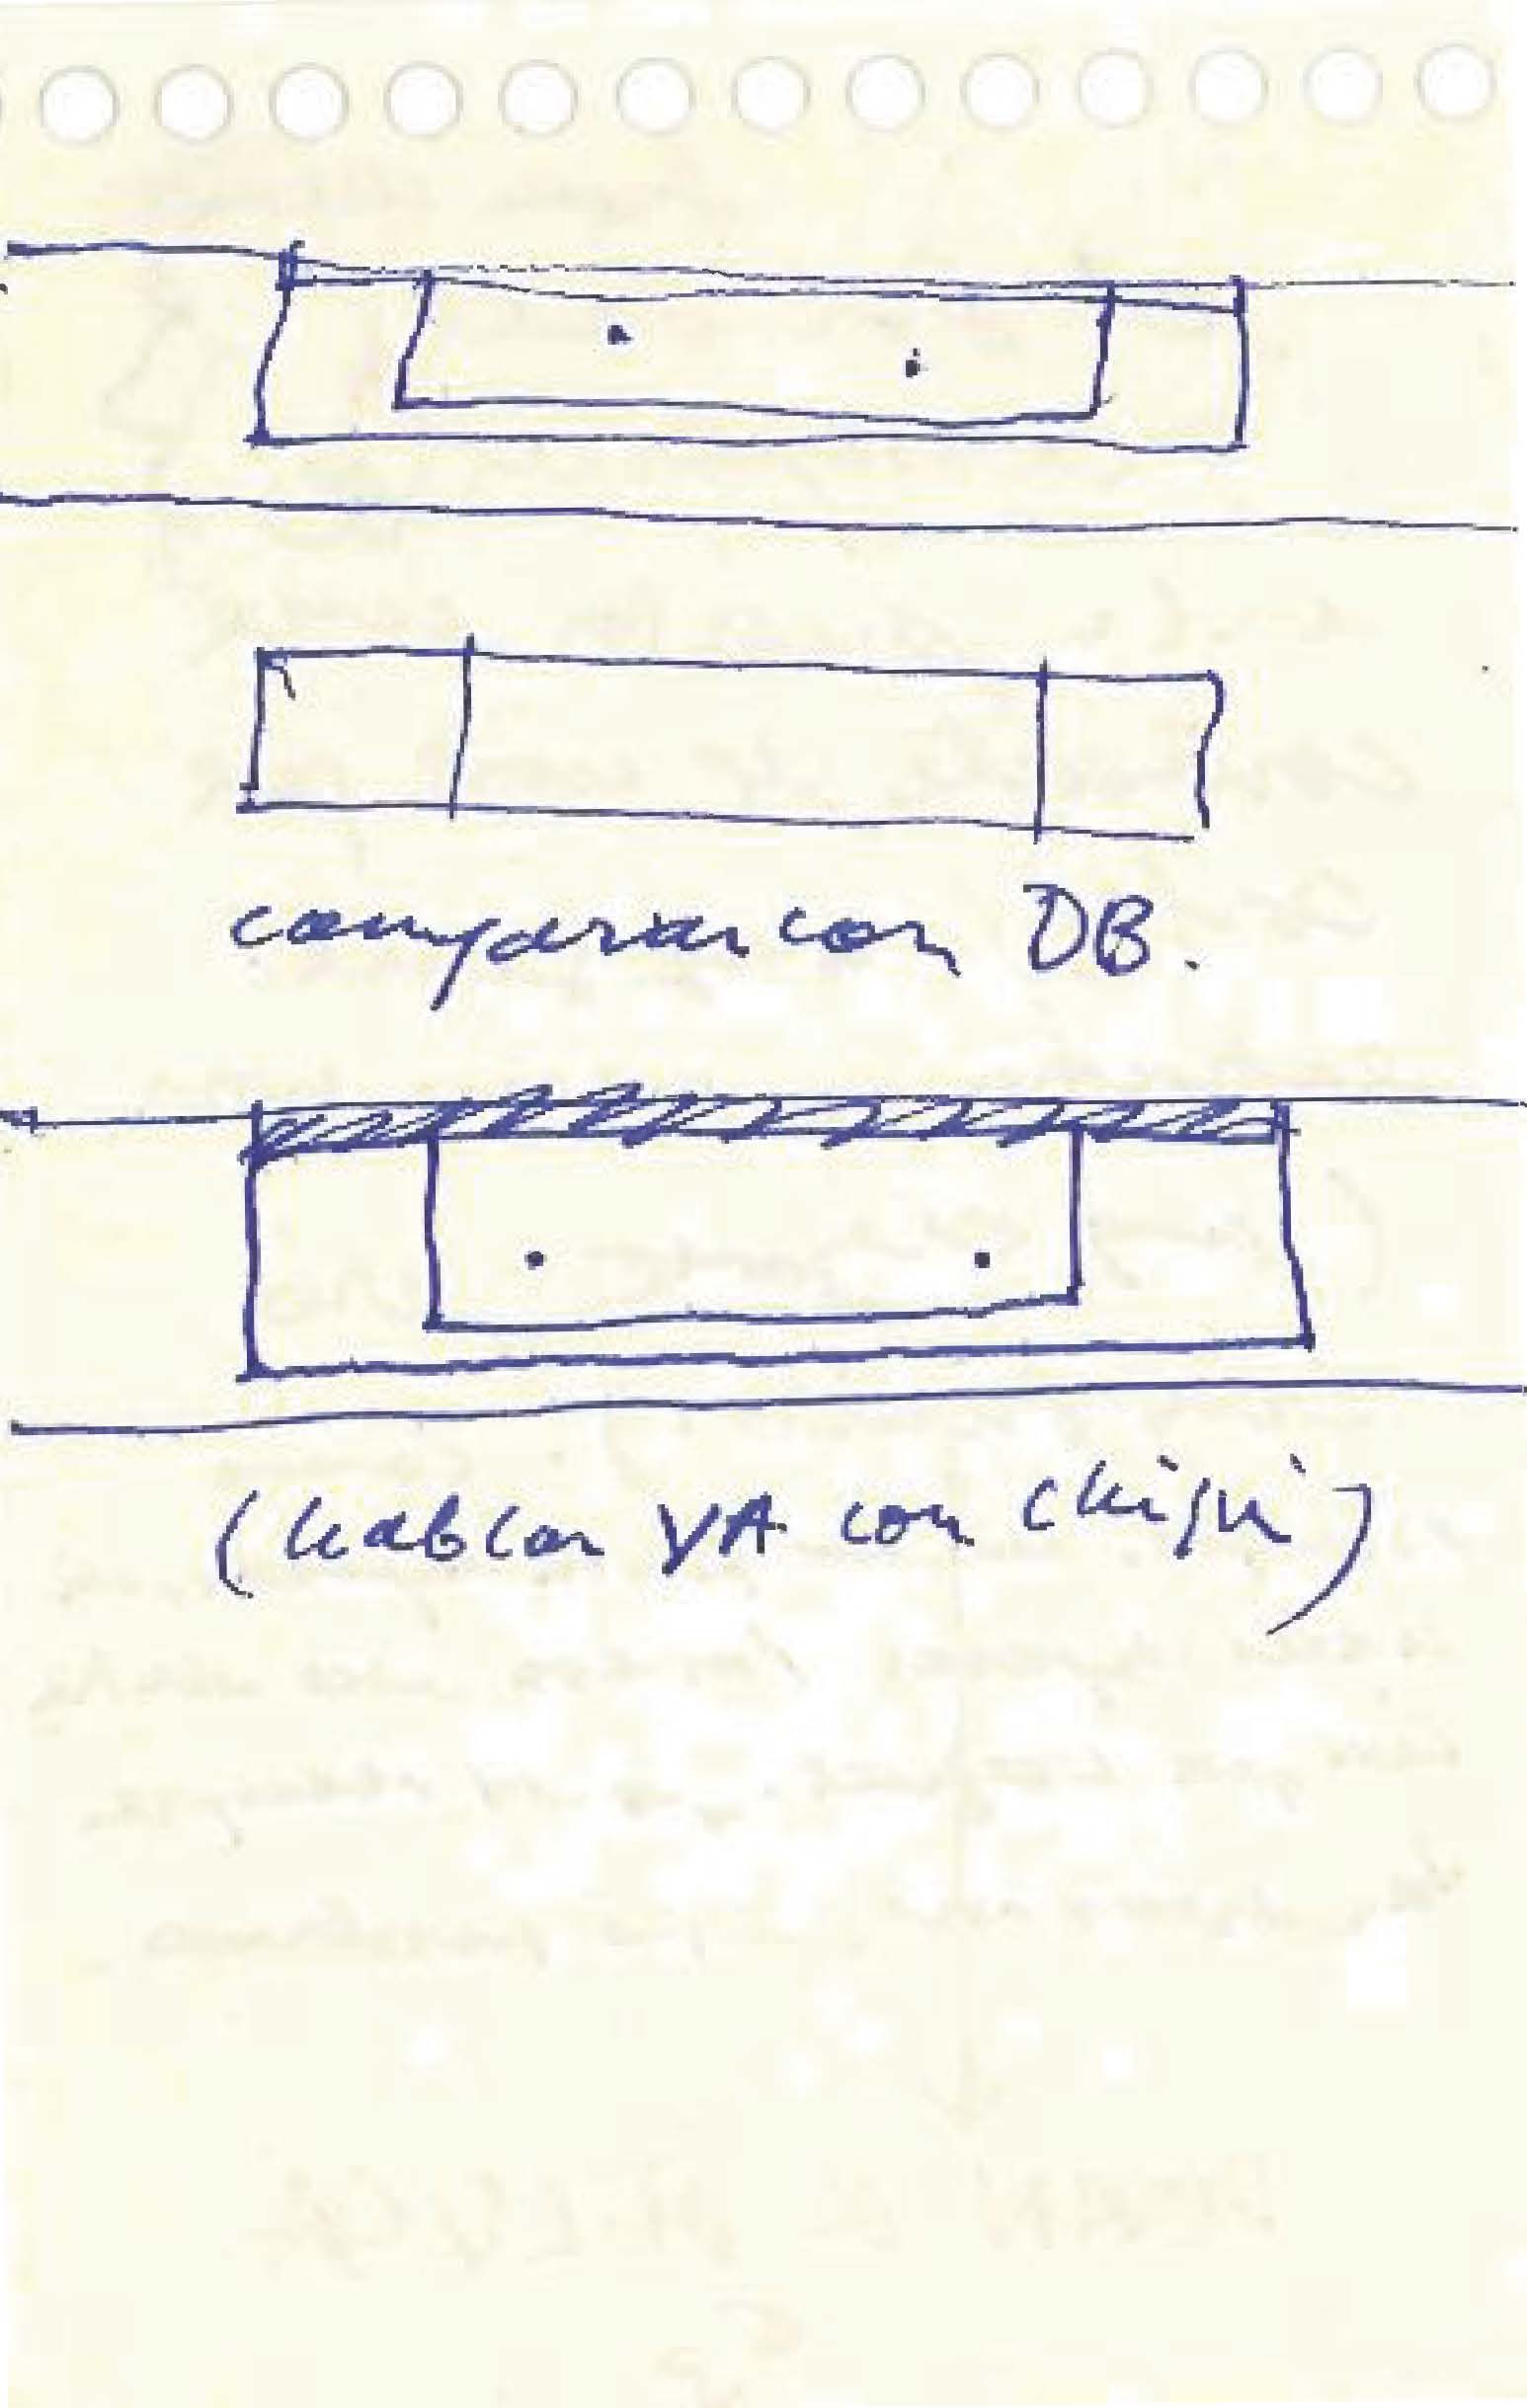 comparar con DB.
(hablar YA con chisji)